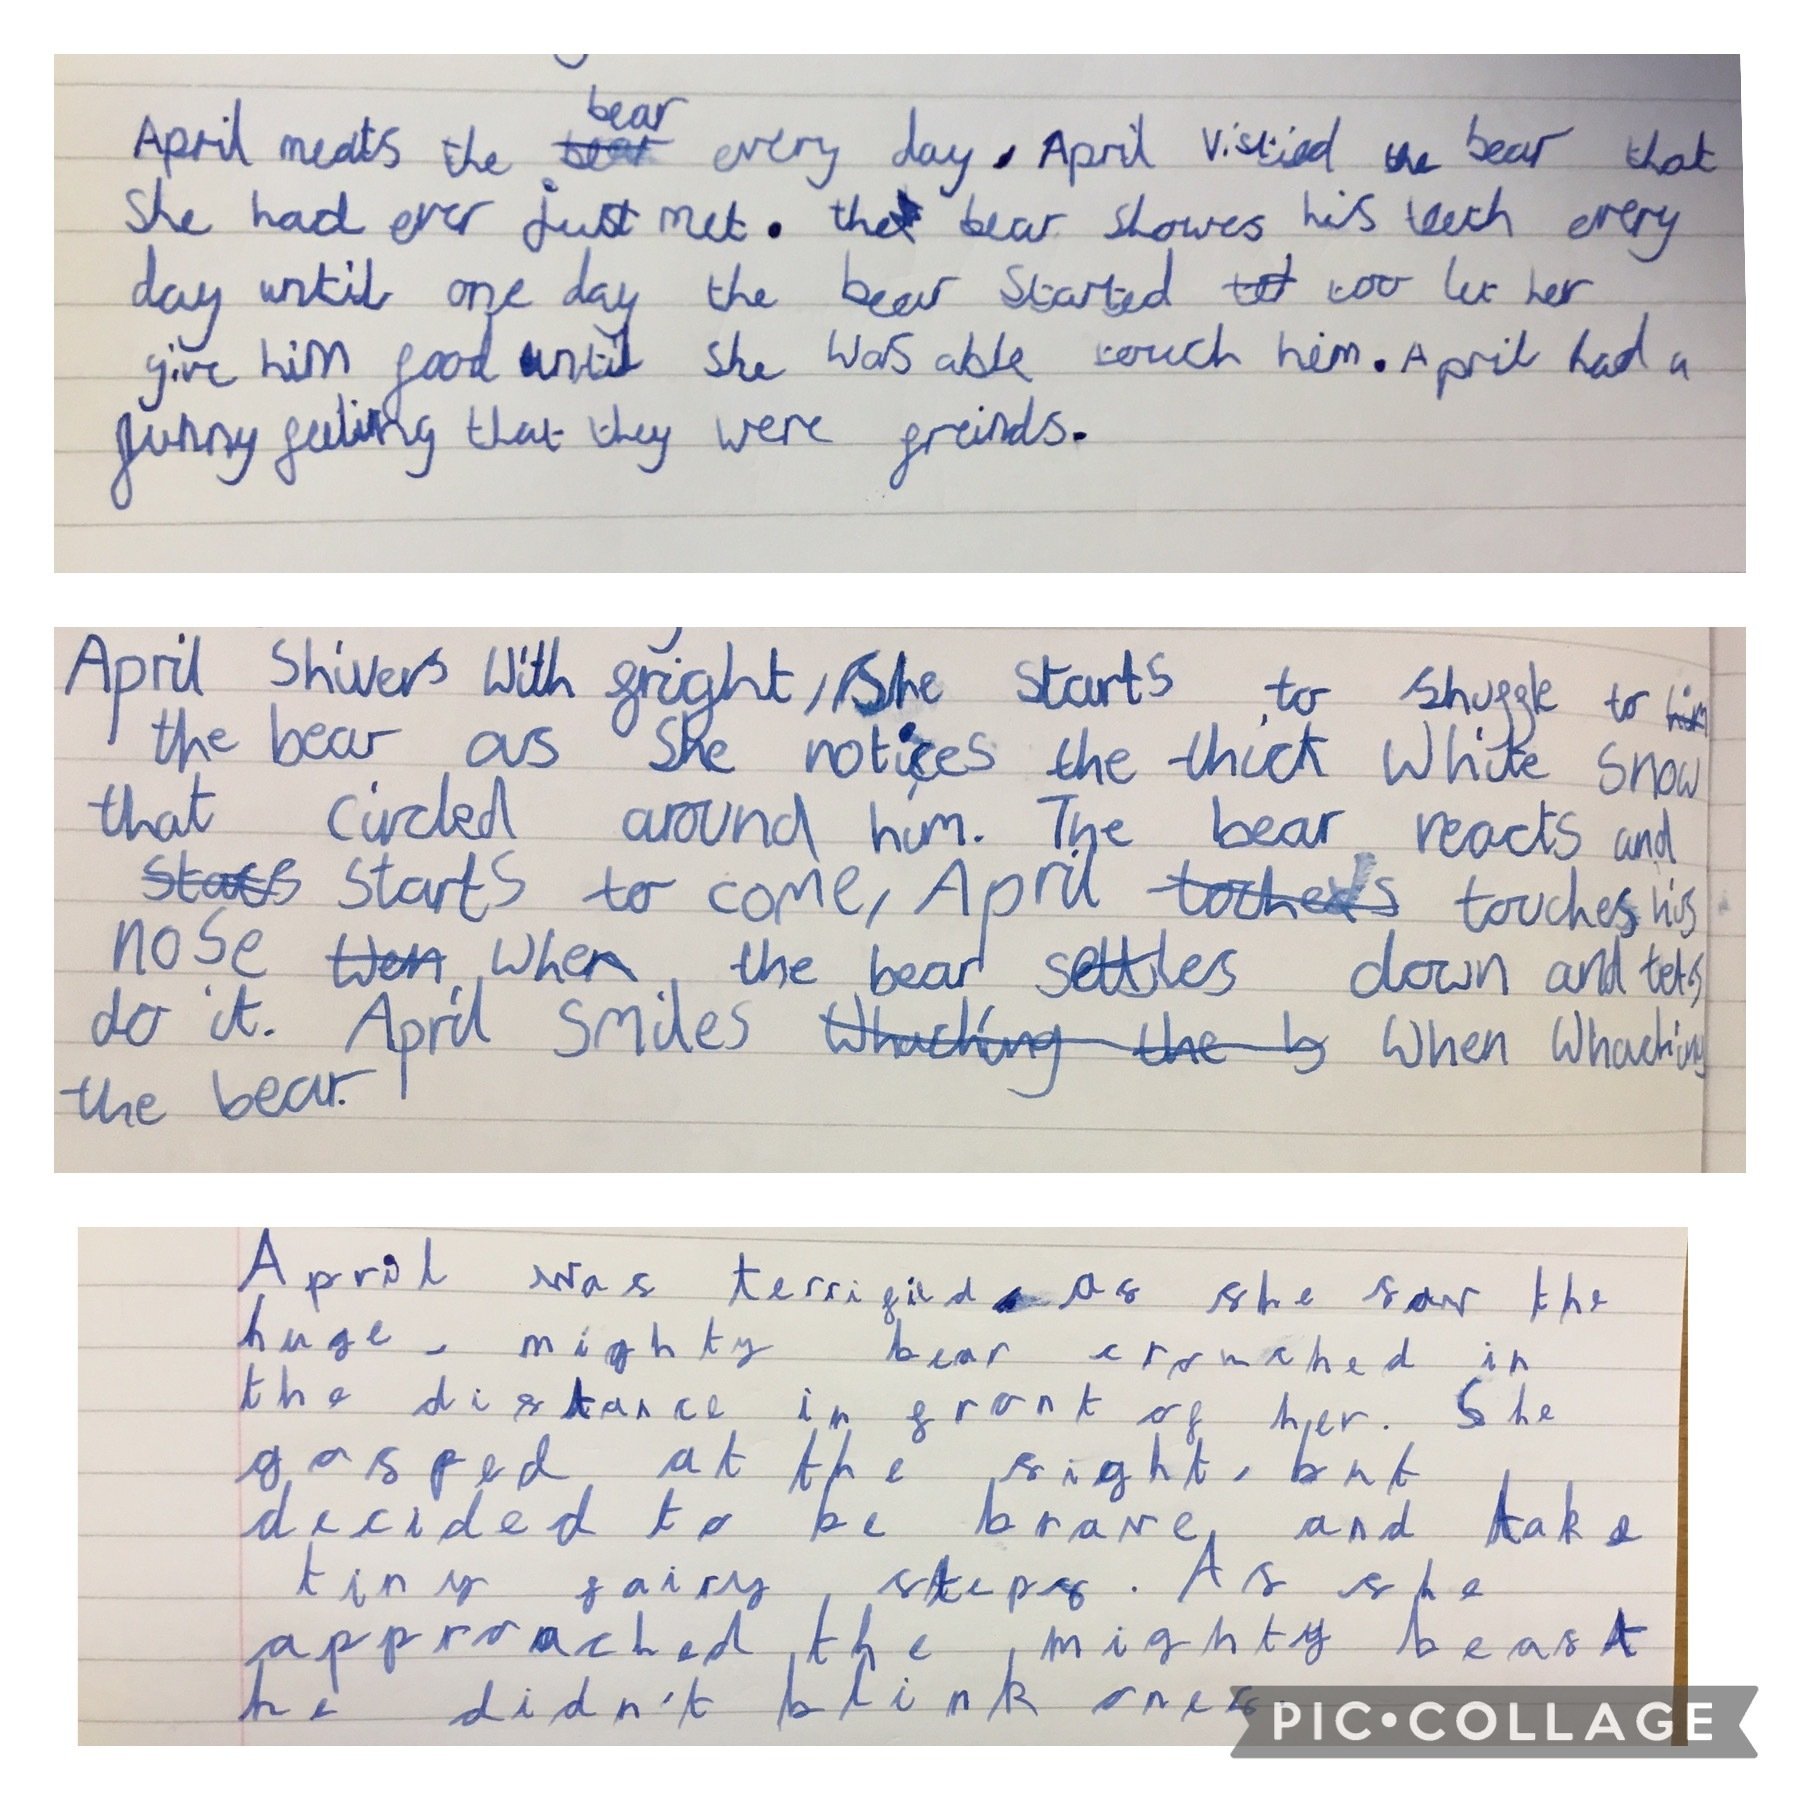 bear
April meats the bear every day. April Vistied the bear that
She had ever just met. the bear Showes his teeth every
day until one day the bear Started tot too let her
give him food until she was able touch him. April had a
funny feeling that they were freinds.
April Shivers With fright, She starts to shuffle to him
the bear as She notices the thick White snow
that circled around him. The bear reacts and
Stats starts to come, April toches touches his
nose Wen When the bear settles down and lets
do it. April Smiles Whaching the b When Whaching
the bear.
April was terrified as she saw the
huge, mighty bear crouched in
the distance in front of her. She
gasped at the sight, but
decided to be brave and take
tiny fairy steps. As she
approached the mighty beast
he didn't blink ones
PIC•COLLAGE